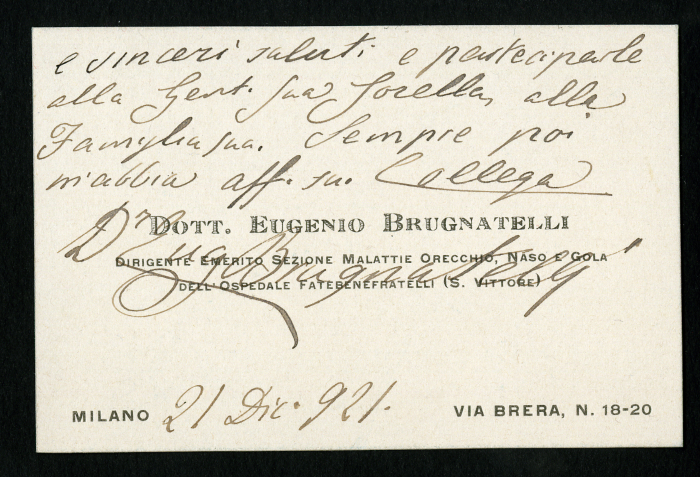 e sinceri saluti e parteciparle
alla Gent. Sua Sorella, alla
Famiglia sua. Sempre poi
m'abbia aff. su. Collega
DOTT. EUGENIO BRUGNATELLI
Dr Eug. Brugnatelli
DIRIGENTE EMERITO SEZIONE MALATTIE ORECCHIO, NASO E GOLA
DELL'OSPEDALE FATEBENEFRATELLI (S. VITTORE)
MILANO 21 Dic. 921. VIA BRERA, N. 18-20